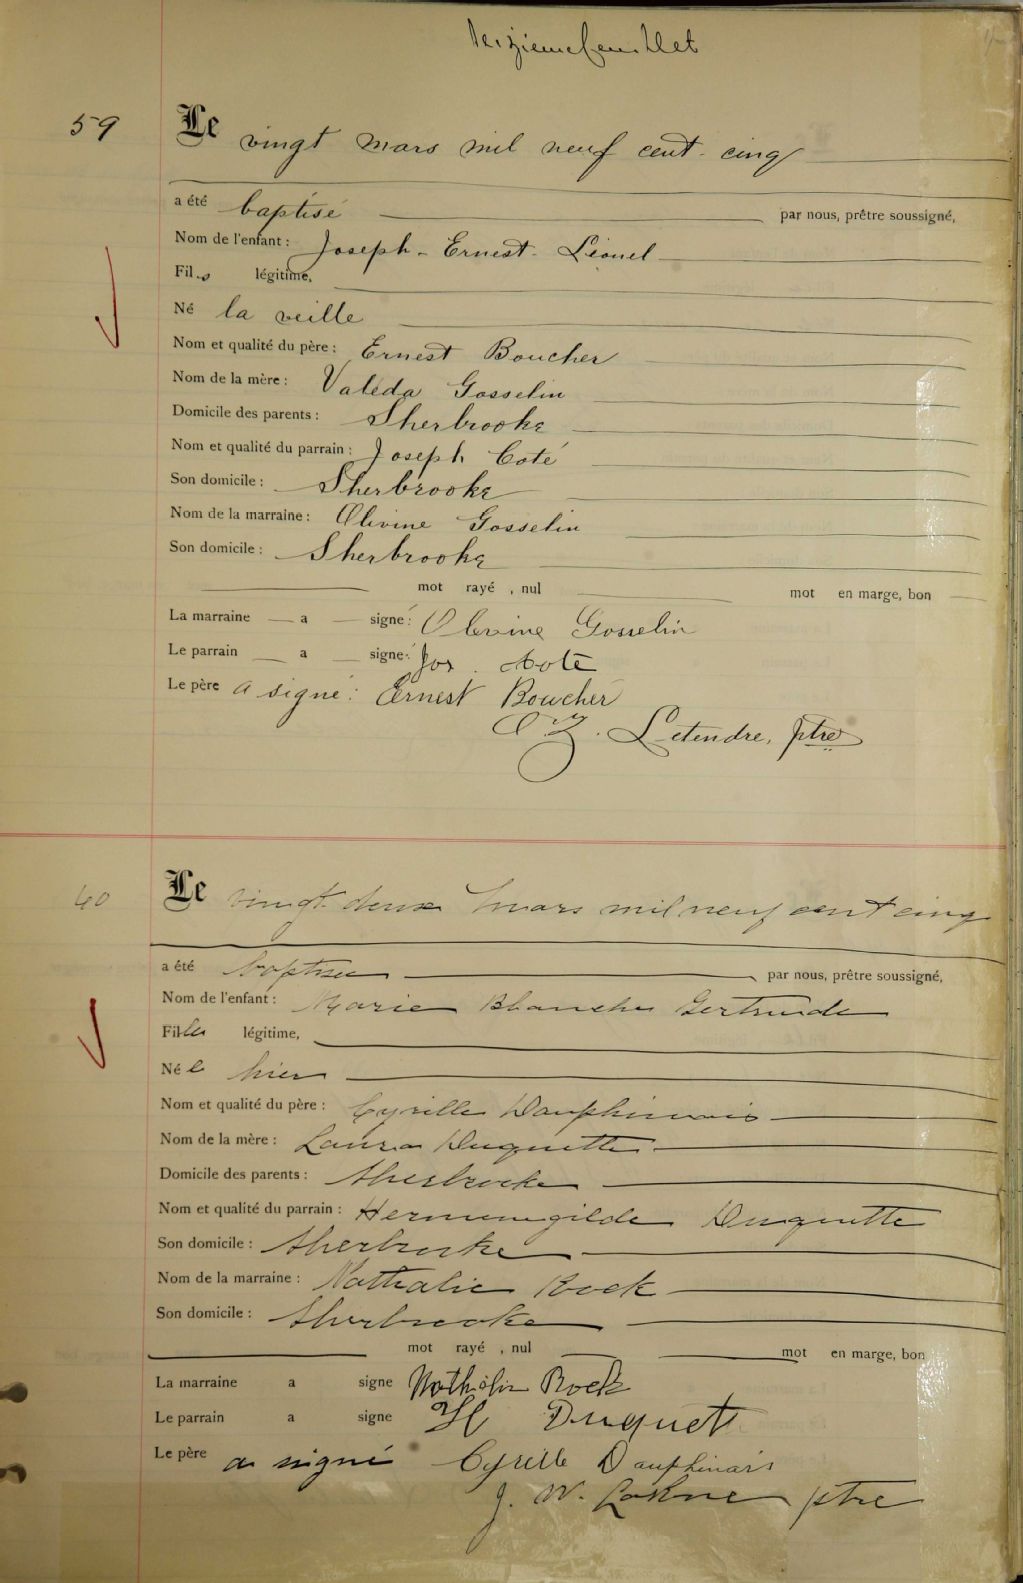 feuillet
59
Le vingt mars mil neuf cent cinq
a été baptisé par nous, prêtre soussigné,
Nom de l'enfant: Joseph - Ernest - Léonel
Fils légitime,
Né la veille
Nom et qualité du père: Ernest Boucher
Nom de la mère: Valéda Gosselin
Domicile des parents: Sherbrooke
Nom et qualité du parrain: Joseph Coté
Son domicile: Sherbrooke
Nom de la marraine: Olivine Gosselin
Son domicile: Sherbrooke
mot rayé, nul mot en marge, bon
La marraine a signé: Olivine Gosselin
Le parrain a signé: Jos. Cote
Le père a signé: Ernest Boucher
Letendre, ptre
40
Le vingt deux mars mil neuf cent cinq
a été baptisée par nous, prêtre soussigné,
Nom de l'enfant: Marie Blanche Gertrude
Fille légitime,
Née hier
Nom et qualité du père: Cyrille Dauphinais
Nom de la mère: Laura Duquette
Domicile des parents: Sherbrooke
Nom et qualité du parrain: Hermenegilde Duquette
Son domicile: Sherbrooke
Nom de la marraine: Nathalie Rock
Son domicile: Sherbrooke
mot rayé, nul mot en marge, bon
La marraine a signe Nathalie Rock
Le parrain a signe H Duquet
Le père a signé Cyrille Dauphinais
J. W. ptre